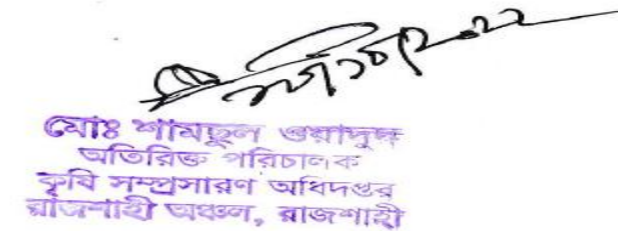 মোঃ শামছুল ওয়াদুদ
অতিরিক্ত পরিচালক
কৃষি সম্প্রসারণ অধিদপ্তর
রাজশাহী অঞ্চল, রাজশাহী